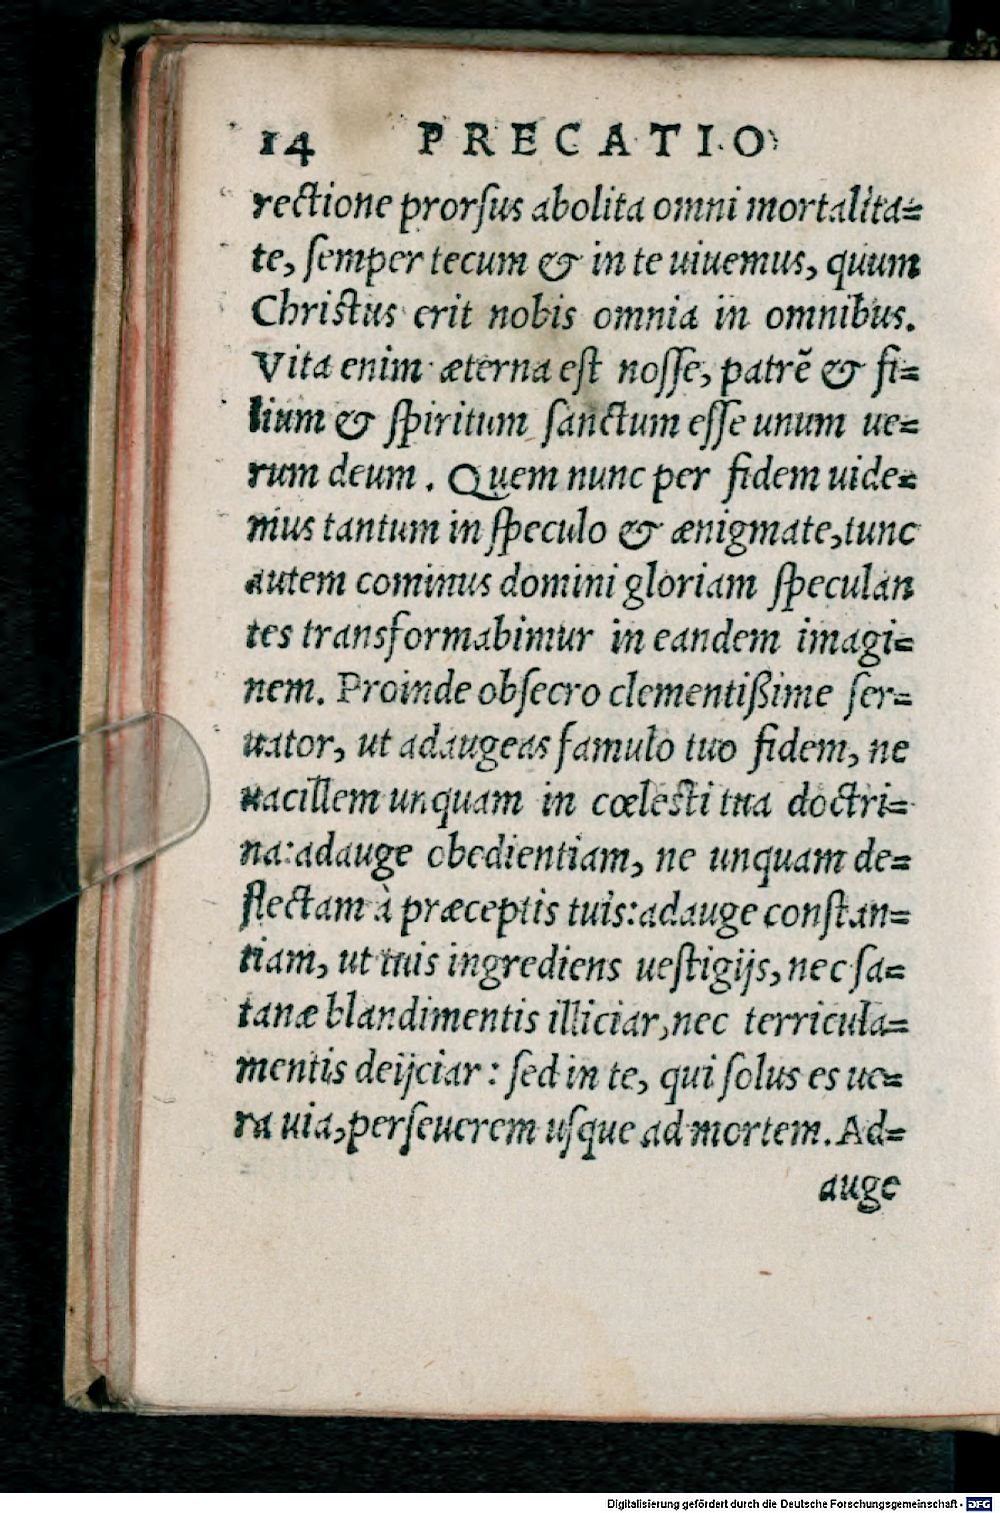 14 PRECATIO
rectione prorſus abolita omni mortalita=
te, ſemper tecum & in te uiuemus, quum
Chriſtus erit nobis omnia in omnibus.
Vita enim æterna eſt noſſe, patrẽ & fi=
lium & ſpiritum ſanctum eſſe unum ue=
rum deum. Quem nunc per fidem uide=
mus tantum in ſpeculo & ænigmate, tunc
autem cominus domini gloriam ſpeculan
tes transformabimur in eandem imagi=
nem. Proinde obſecro clementißime ſer=
uator, ut adaugeas famulo tuo fidem, ne
uacillem unquam in cœleſti tua doctri=
na: adauge obedientiam, ne unquam de=
flectam à præceptis tuis: adauge conſtan=
tiam, ut tuis ingrediens ueſtigijs, nec ſa=
tanæ blandimentis illiciar, nec terricula=
mentis deijciar: ſed in te, qui ſolus es ue=
ra uia, perſeuerem uſque ad mortem. Ad=
auge
Digitalisierung gefördert durch die Deutsche Forschungsgemeinschaft - DFG